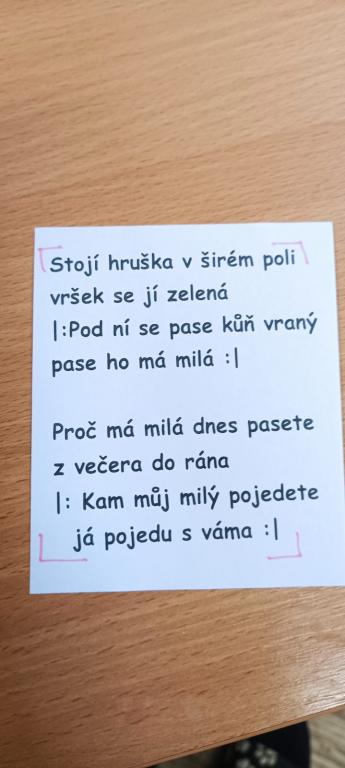 Stojí hruška v širém poli
vršek se jí zelená
|:Pod ní se pase kůň vraný
pase ho má milá :|
Proč má milá dnes pasete
z večera do rána
|: Kam můj milý pojedete
já pojedu s váma :|